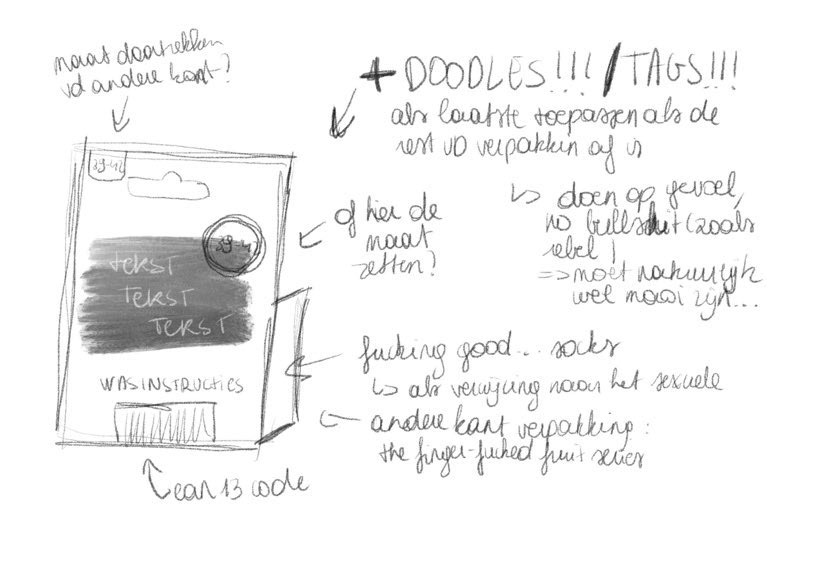 maat doortrekken
vd andere kant?
+ DOODLES!!! / TAGS!!!
als laatste toepassen als de
rest vd verpakken af is
↳ doen op gevoel,
no bullshit (zoals
rebel)
=> moet natuurlijk
wel mooi zijn...
39-42
of hier de
maat
zetten?
39-42
TEKST
TEKST
TEKST
fucking good... socks
↳ als verwijzing naar het sexuele
WASINSTRUCTIES
andere kant verpakking:
the finger-fucked fruit series
ean 13 code